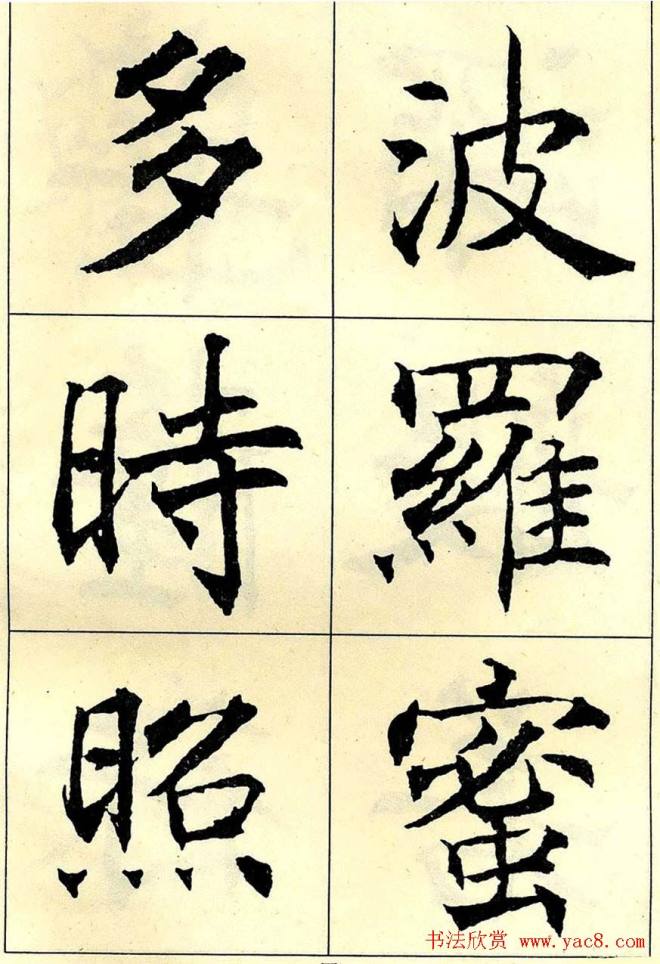 波羅蜜
多時照
书法欣赏 www.yac8.com